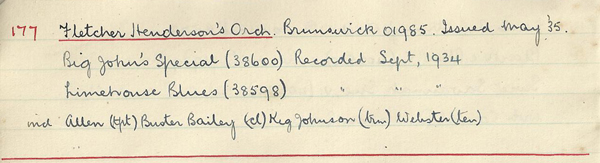 177 Fletcher Henderson's Orch. Brunswick 01985. Issued May '35.
Big John's Special (38600) Recorded Sept, 1934
Limehouse Blues (38598) " " "
incl Allen (tpt) Buster Bailey (cl) Keg Johnson (trm) Webster (ten)